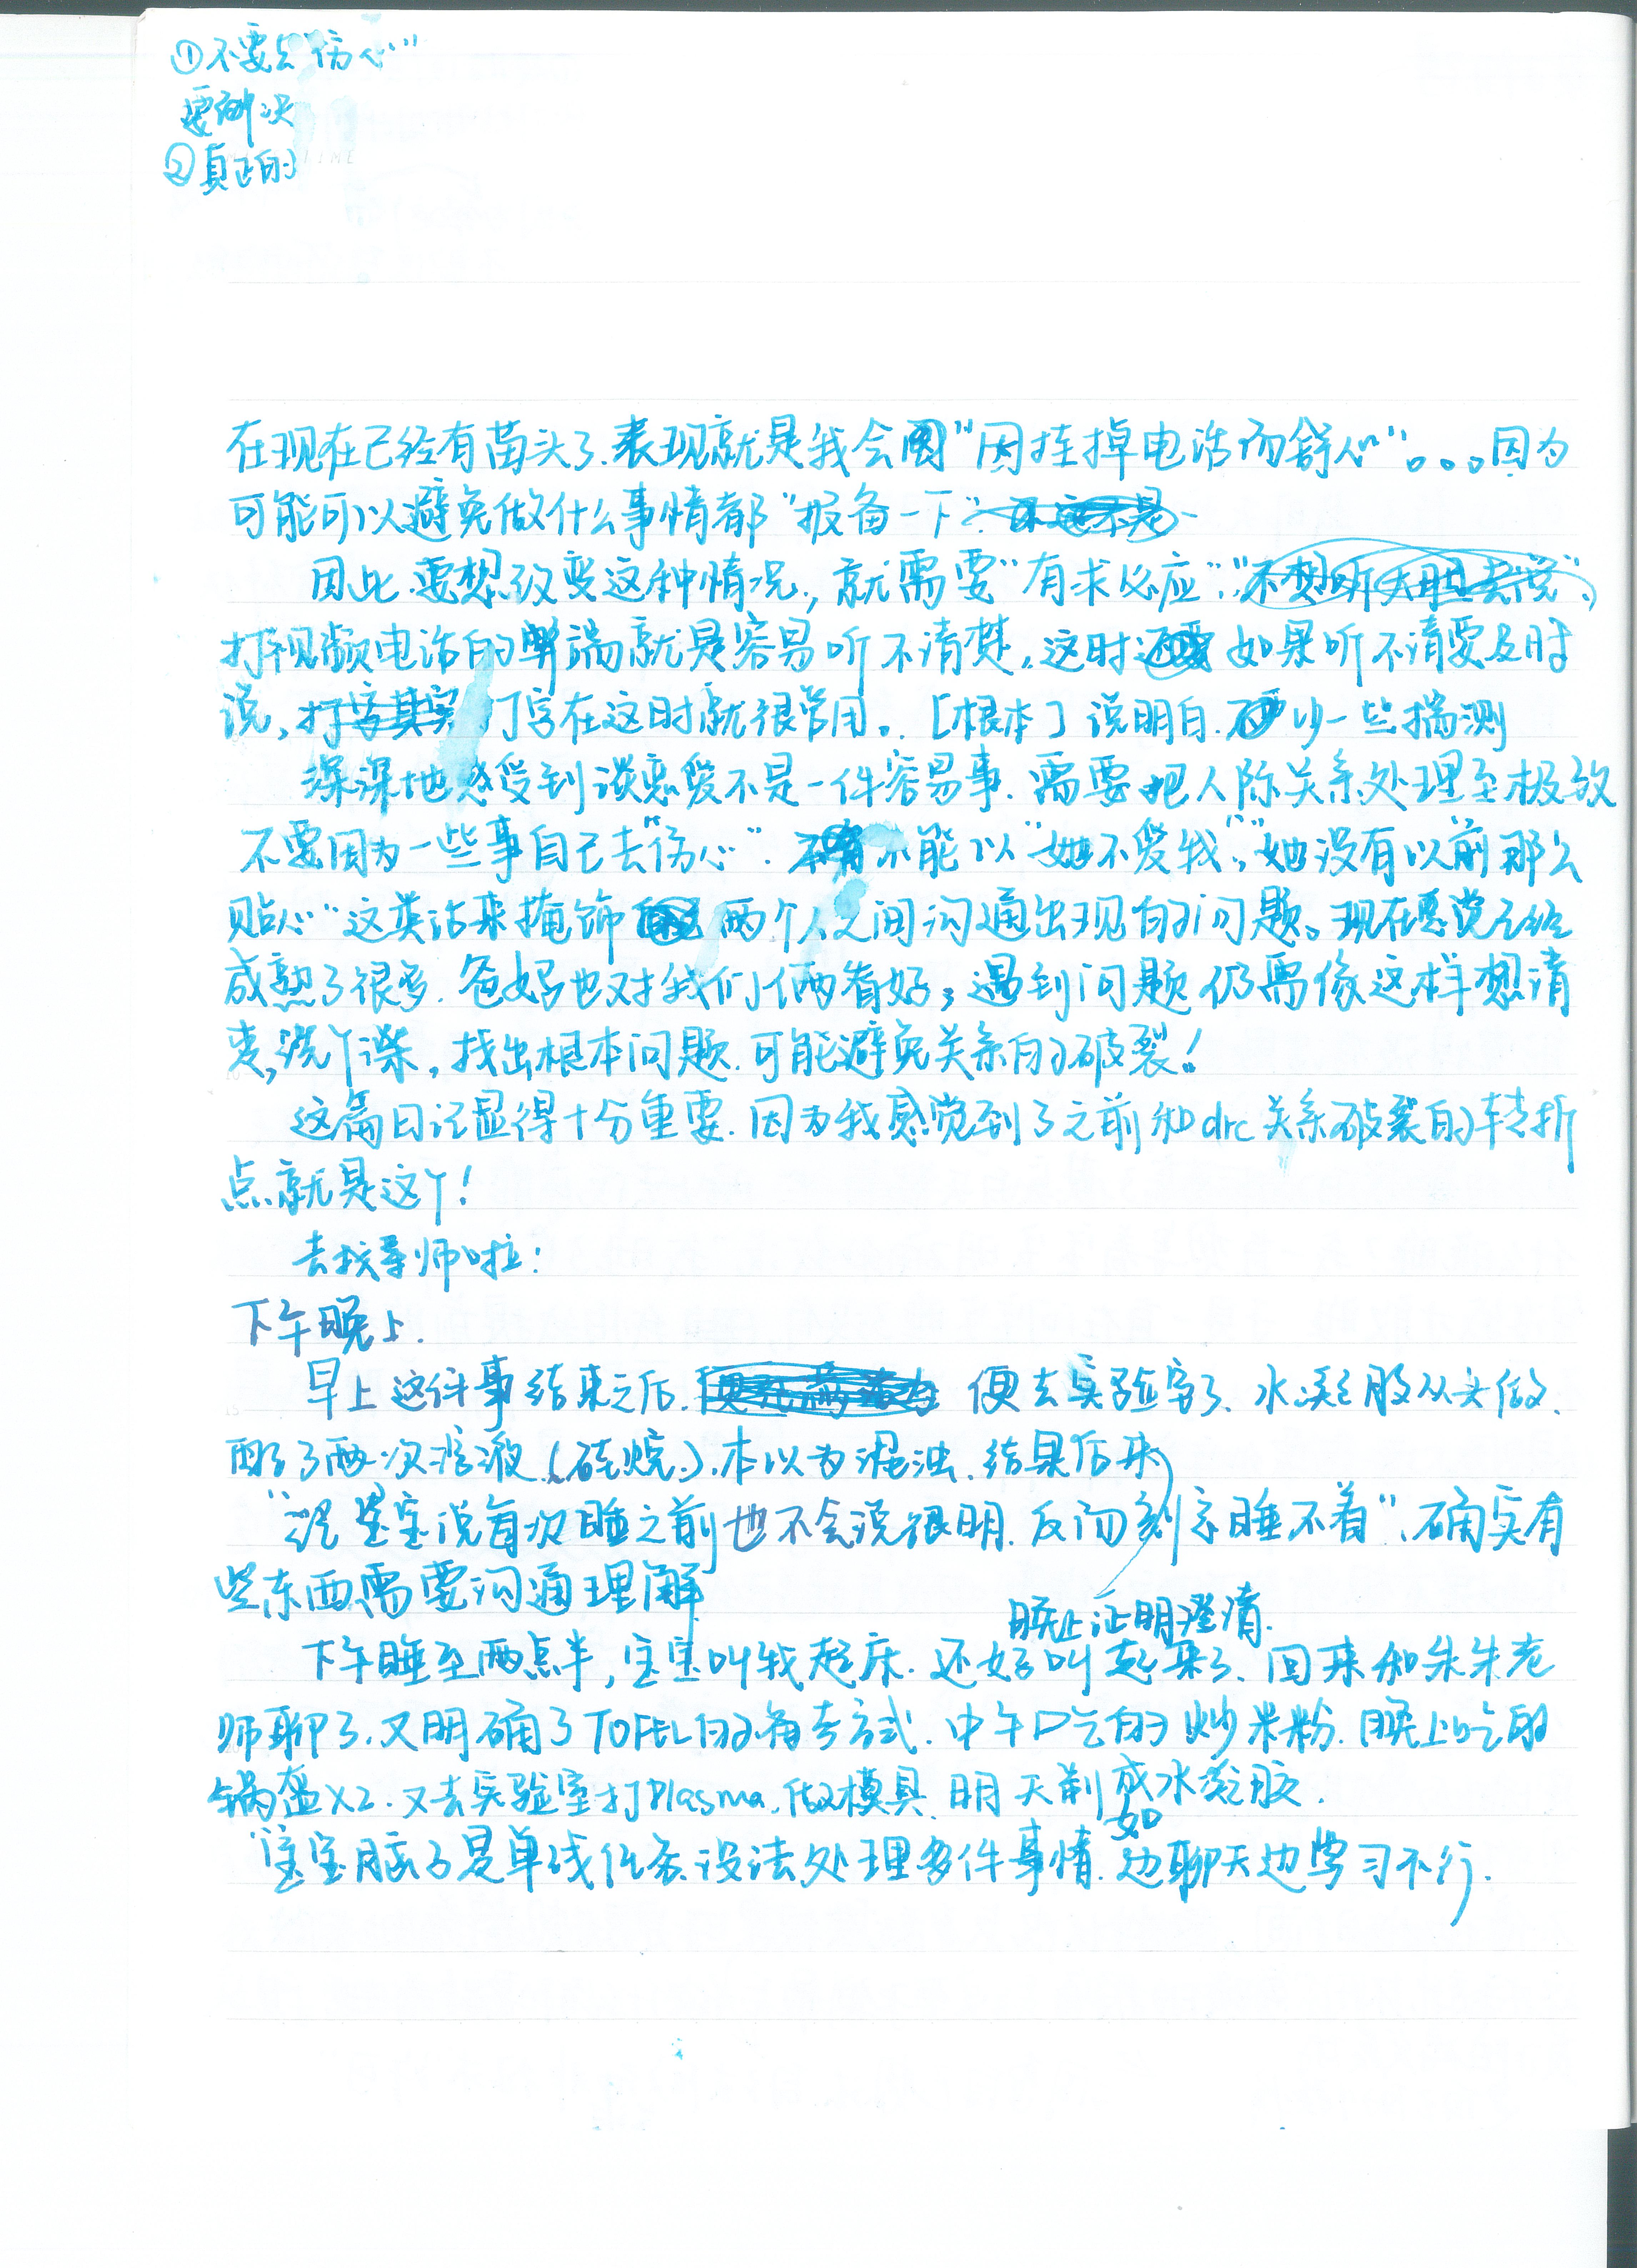 ①不要去"伤心"
要解决
②真正的
在现在已经有苗头了.表现就是我会因"因挂掉电话而舒心"。。。因为
可能可以避免做什么事情都"报备一下".
因此.要想改变这种情况,就需要"有求必应"."不想听大胆去说".
打视频电话的弊端就是容易听不清楚.这时 如果听不清要及时
说,打字在这时就很管用。[根本]说明白.少一些揣测
深深地感受到谈恋爱不是一件容易事.需要把人际关系处理至极致
不要因为一些事自己去"伤心".不能以"她不爱我","她没有以前那么
贴心"这类话来掩饰 两个人之间沟通出现的问题。现在感觉已经
成熟了很多.爸妈也对我们俩看好,遇到问题仍需像这样想清
楚,找出根本问题.可能避免关系的破裂!
这篇日记显得十分重要.因为我感觉到了之前和drc关系破裂的转折
点就是这个!
去找导师啦!
下午晚上.
早上这件事结束之后. 便去实验室了.水凝胶从头做.
配了两次溶液(硅烷).本以为混浊.结果后来
宝宝说每次睡之前也不会说很明.反而刻意睡不着".确实有
些东西需要沟通理解
晚上证明澄清.
下午睡至两点半,宝宝叫我起床.还好叫起来了.回来和朱朱老
师聊了.又明确了TOFEL的备考方式.中午吃的炒米粉.晚上吃的
锅盔X2.又去实验室打Plasma.做模具.明天制成水凝胶.
如
"宝宝脑子是单线任务.没法处理多件事情.边聊天边学习不行.